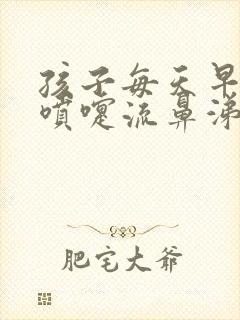 孩子每天早
喷嚏流鼻涕
肥宅大爷